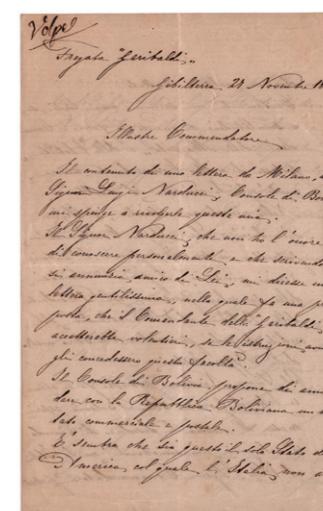 Volpe
Fregata "Garibaldi"
Gibilterra 24 Novembre 18
Illustre Commendatore
Il contenuto di una lettera da Milano, d
Signor Luigi Narducci, Console di Bol
mi spinge a rivolgerle questa mia.
Il Signor Narducci, che non ho l'onore
di conoscere personalmente e che scrivendo
si annunzia amico di Lei, mi diresse un
lettera gentilissima, nella quale fa una p
posta, che il Comandante della "Garibaldi
accetterebbe volentieri, se le istruzioni av
gli concedessero questa facoltà.
Il Console di Bolivia propone di
dere con la Repubblica Boliviana un
tato commerciale e postale.
E' sembra che sia questo il solo Stato d
America, col quale l'Italia non a